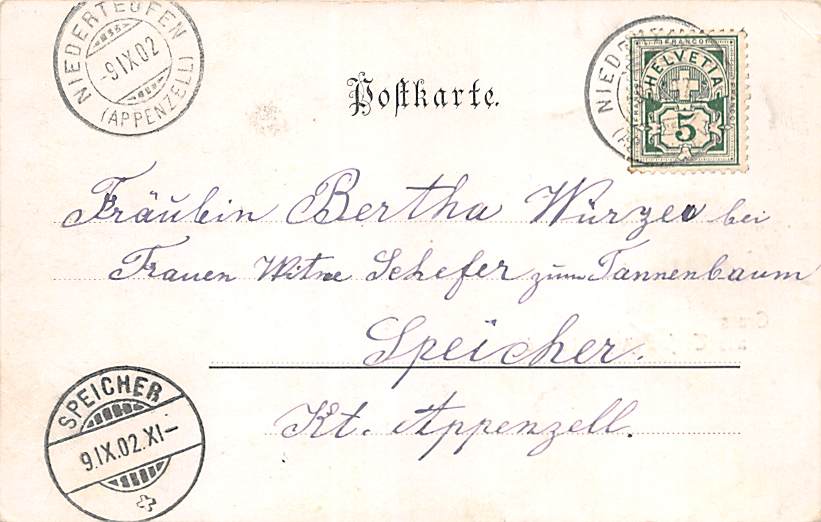 NIEDERTEUFEN
-9.IX.02
(APPENZELL)
Postkarte.
NIED
FRANCO
HELVETIA
5
Fräulein Bertha bei
Frauen Witwe Schefer zum Tannenbaum
Speicher.
Kt. Appenzell.
SPEICHER
9.IX.02.XI-